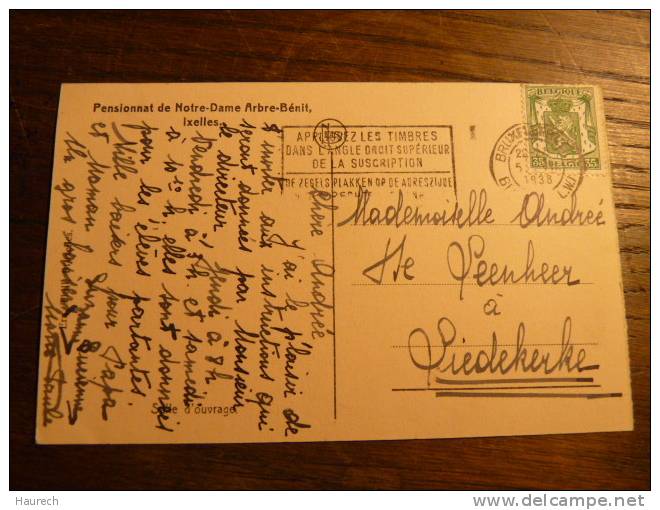 Pensionnat de Notre-Dame Arbre-Bénit,
Ixelles.
APPLIQUEZ LES TIMBRES
DANS L'ANGLE DROIT SUPÉRIEUR
DE LA SUSCRIPTION
DE ZEGELS PLAKKEN OP DE ADRESZIJDE
BRUXELLES
1938
BELGIQUE
35 35
BELGIE
Mademoiselle Andrée
Peenheer
à
Liedekerke
Chère Andrée
J'ai le plaisir de
t'inviter aux instructions qui
seront données par Monsieur
le directeur. Jeudi à 8h
Vendredi à 7h et samedi
à 10 h. elles sont données
pour les élèves partantes
Mille baisers pour Papa
et Maman
Un gros baiser
Salle d'ouvrage
Haurech
delcampe.net